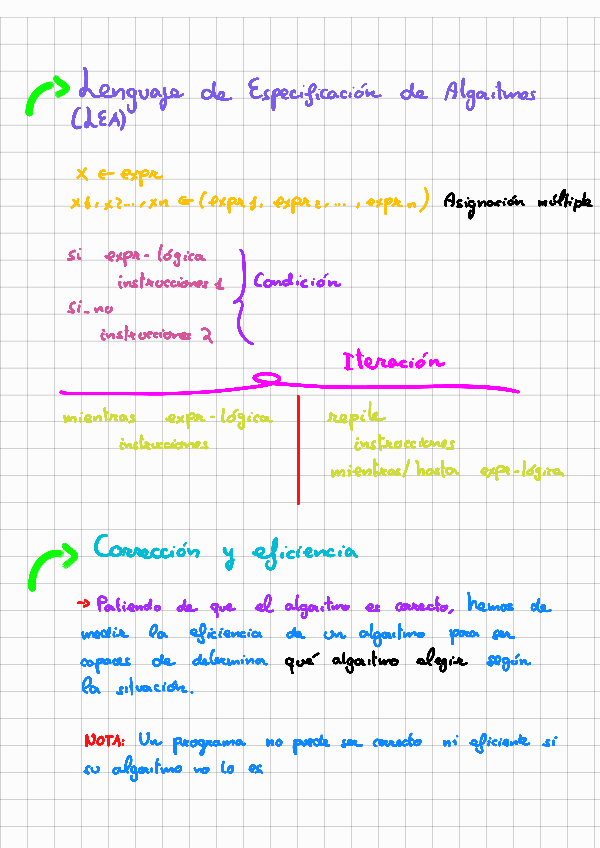 Lenguaje de Especificación de Algoritmos
(LEA)
x ← expr
x1, x2..., xn ← (expr 1, expr 2, ..., expr n) Asignación múltiple
si expr-lógica
instrucciones 1
Condición
si_no
instrucciones 2
Iteración
mientras expr-lógica
instrucciones
repite
instrucciones
mientras/hasta expr-lógica
Corrección y eficiencia
→ Patiendo de que el algoritmo es correcto, hemos de
medir la eficiencia de un algoritmo para ser
capaces de determina qué algoritmo elegir según
la situación.
NOTA: Un programa no puede ser correcto ni eficiente si
su algoritmo no lo es